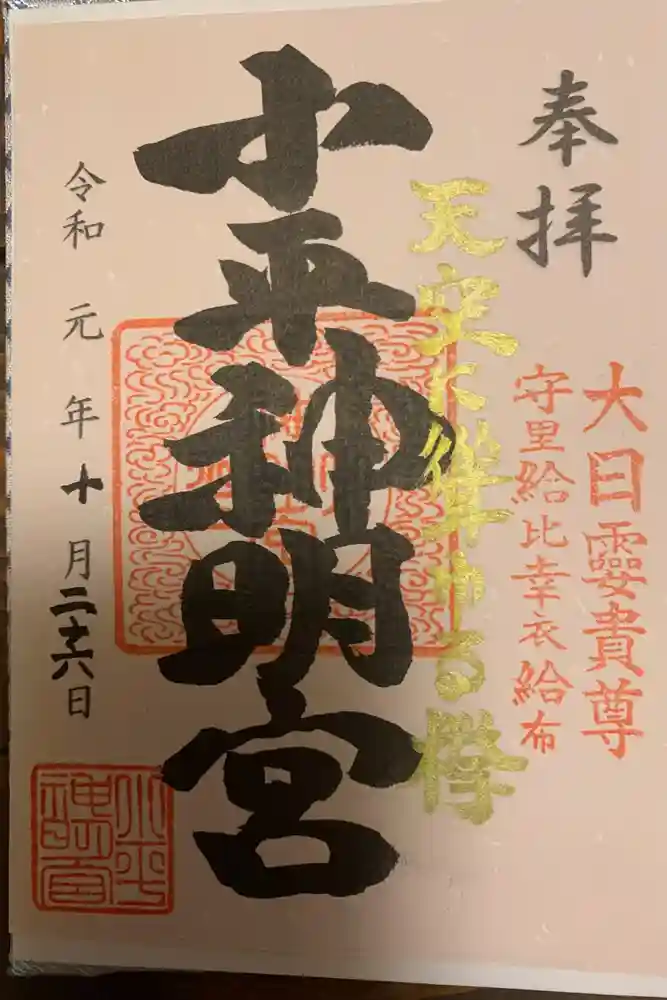 奉拝
大日孁貴尊
守里給比幸衣給布
天空に聳ゆる欅
小平神明宮
令和元年十月二十六日
小平
神明宮